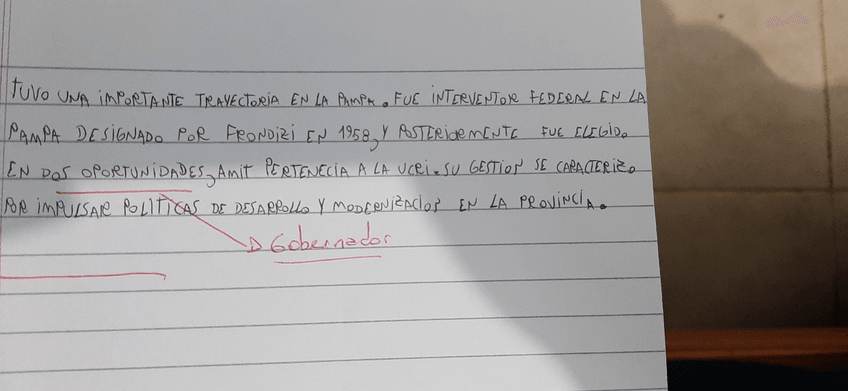 TUVO UNA IMPORTANTE TRAYECTORIA EN LA PAMPA. FUE INTERVENTOR FEDERAL EN LA
PAMPA DESIGNADO POR FRONDIZI EN 1958, Y POSTERIORMENTE FUE ELEGIDO
EN DOS OPORTUNIDADES, AMIT PERTENECIA A LA UCRI. SU GESTION SE CARACTERIZO
POR IMPULSAR POLITICAS DE DESARROLLO Y MODERNIZACION EN LA PROVINCIA.
Gobernador